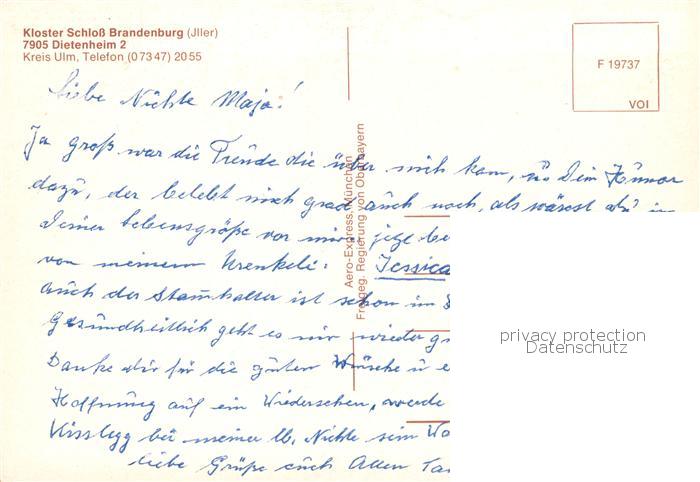 Kloster Schloß Brandenburg (Jller)
7905 Dietenheim 2
Kreis Ulm, Telefon (0 73 47) 20 55
F 19737
VOI
Liebe Nichte Maja!
Ja groß war die Freude die über mich kam, u. Dein Humor
dazu, der belebt mich grad auch noch, als wärest du in
Deiner Lebensgröße vor mir, jetzt
von meinem Urenkeli: Jessica
auch der Stammhalter ist schon im
Gesundheitlich geht es mir wieder
Danke dir für die guten Wünsche u
Hoffnung auf ein Wiedersehen, werde
Kisslegg bei meiner lb. Nichte sein
liebe Grüße euch Allen
Aero-Express, München
Freigeg. Regierung von Oberbayern
privacy protection
Datenschutz